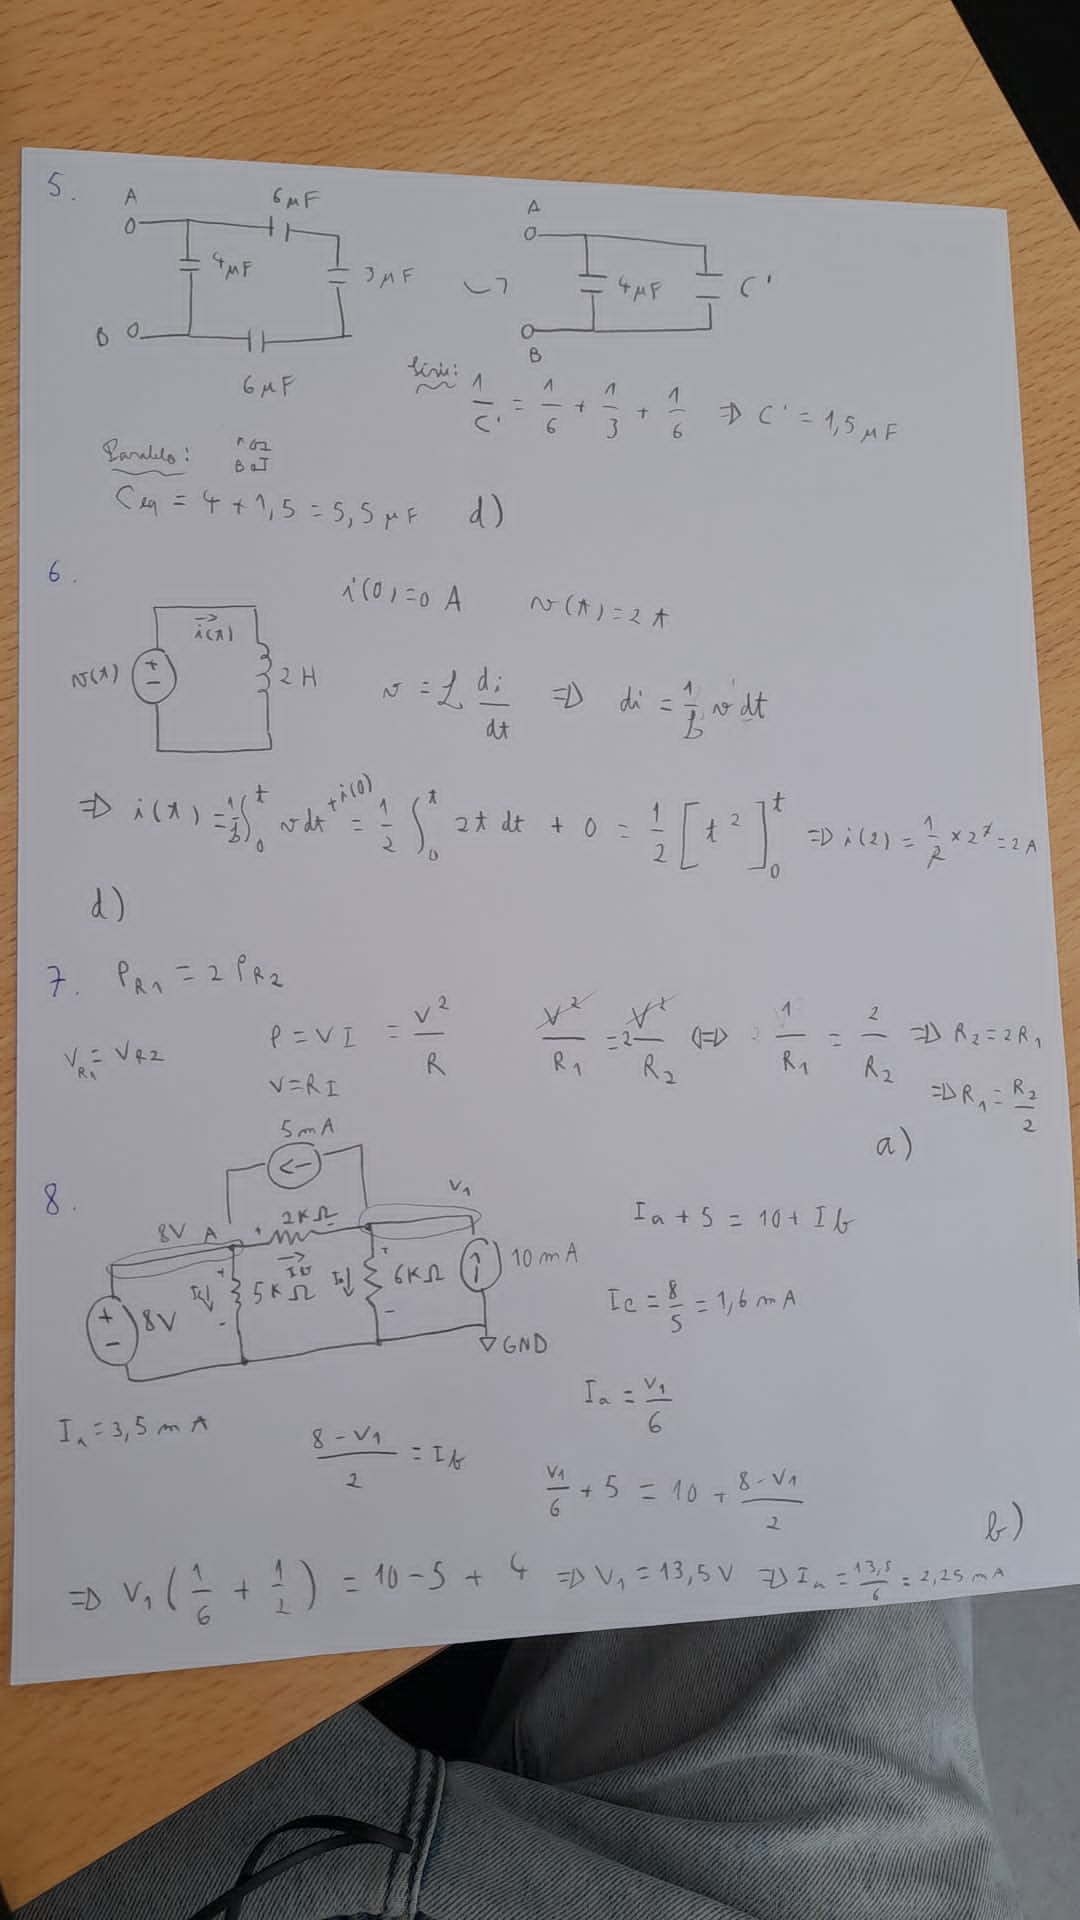 5.
A
6 μF
4 μF
3 μF
B
6 μF
A
4 μF
C'
B
Série:
1/C' = 1/6 + 1/3 + 1/6 ⇒ C' = 1,5 μF
Paralelo:
Ceq = 4 + 1,5 = 5,5 μF d)
6.
i(0) = 0 A v(t) = 2t
i(t)
v(t)
+
-
2 H
v = L di/dt ⇒ di = 1/L v dt
⇒ i(t) = 1/L ∫₀ᵗ v dt + i(0) = 1/2 ∫₀ᵗ 2t dt + 0 = 1/2 [t²]₀ᵗ ⇒ i(2) = 1/2 × 2² = 2 A
d)
7. P_R1 = 2 P_R2
V_R1 = V_R2
P = V I = V²/R
V = R I
V²/R1 = 2 V²/R2 ⇔ 1/R1 = 2/R2 ⇒ R2 = 2R1
⇒ R1 = R2/2
a)
8.
5 mA
V1
8V A + 2KΩ
Ib
10 mA
Ic 5KΩ
Ia 6KΩ
+
-
8V
GND
Ia + 5 = 10 + Ib
Ic = 8/5 = 1,6 mA
Ia = V1/6
I = 3,5 mA
(8 - V1)/2 = Ib
V1/6 + 5 = 10 + (8 - V1)/2
b)
⇒ V1 (1/6 + 1/2) = 10 - 5 + 4 ⇒ V1 = 13,5 V ⇒ Ia = 13,5/6 = 2,25 mA